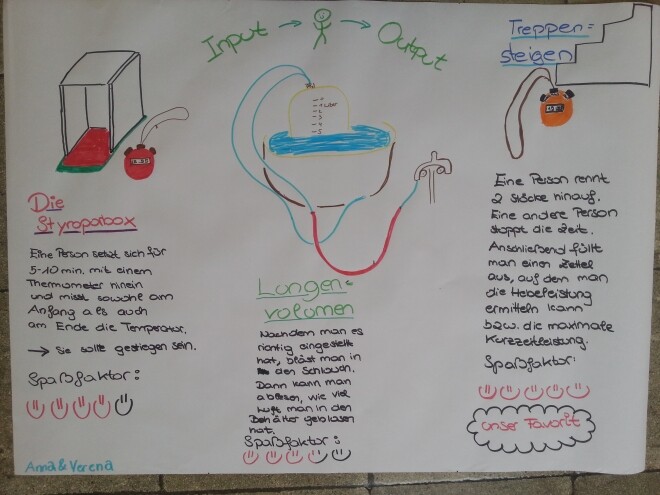 Input → → Output
Die
Styroporbox
Eine Person setzt sich für
5-10 min. mit einem
Thermometer hinein
und misst sowohl am
Anfang als auch
am Ende die Temperatur.
→ Sie sollte gestiegen sein.
Spaßfaktor:
Anna & Verena
1 Liter
2
3
4
5
Lungen-
volumen
Nachdem man es
richtig eingestellt
hat, bläst man in
den Schlauch.
Dann kann man
ablesen, wie viel
Luft man in den
Behälter geblasen
hat.
Spaßfaktor:
Treppen=
steigen
Eine Person rennt
2 Stöcke hinauf.
Eine andere Person
stoppt die Zeit.
Anschließend füllt
man einen Zettel
aus, auf dem man
die Hebeleistung
ermitteln kann
bzw. die maximale
Kurzzeitleistung.
Spaßfaktor:
unser Favorit